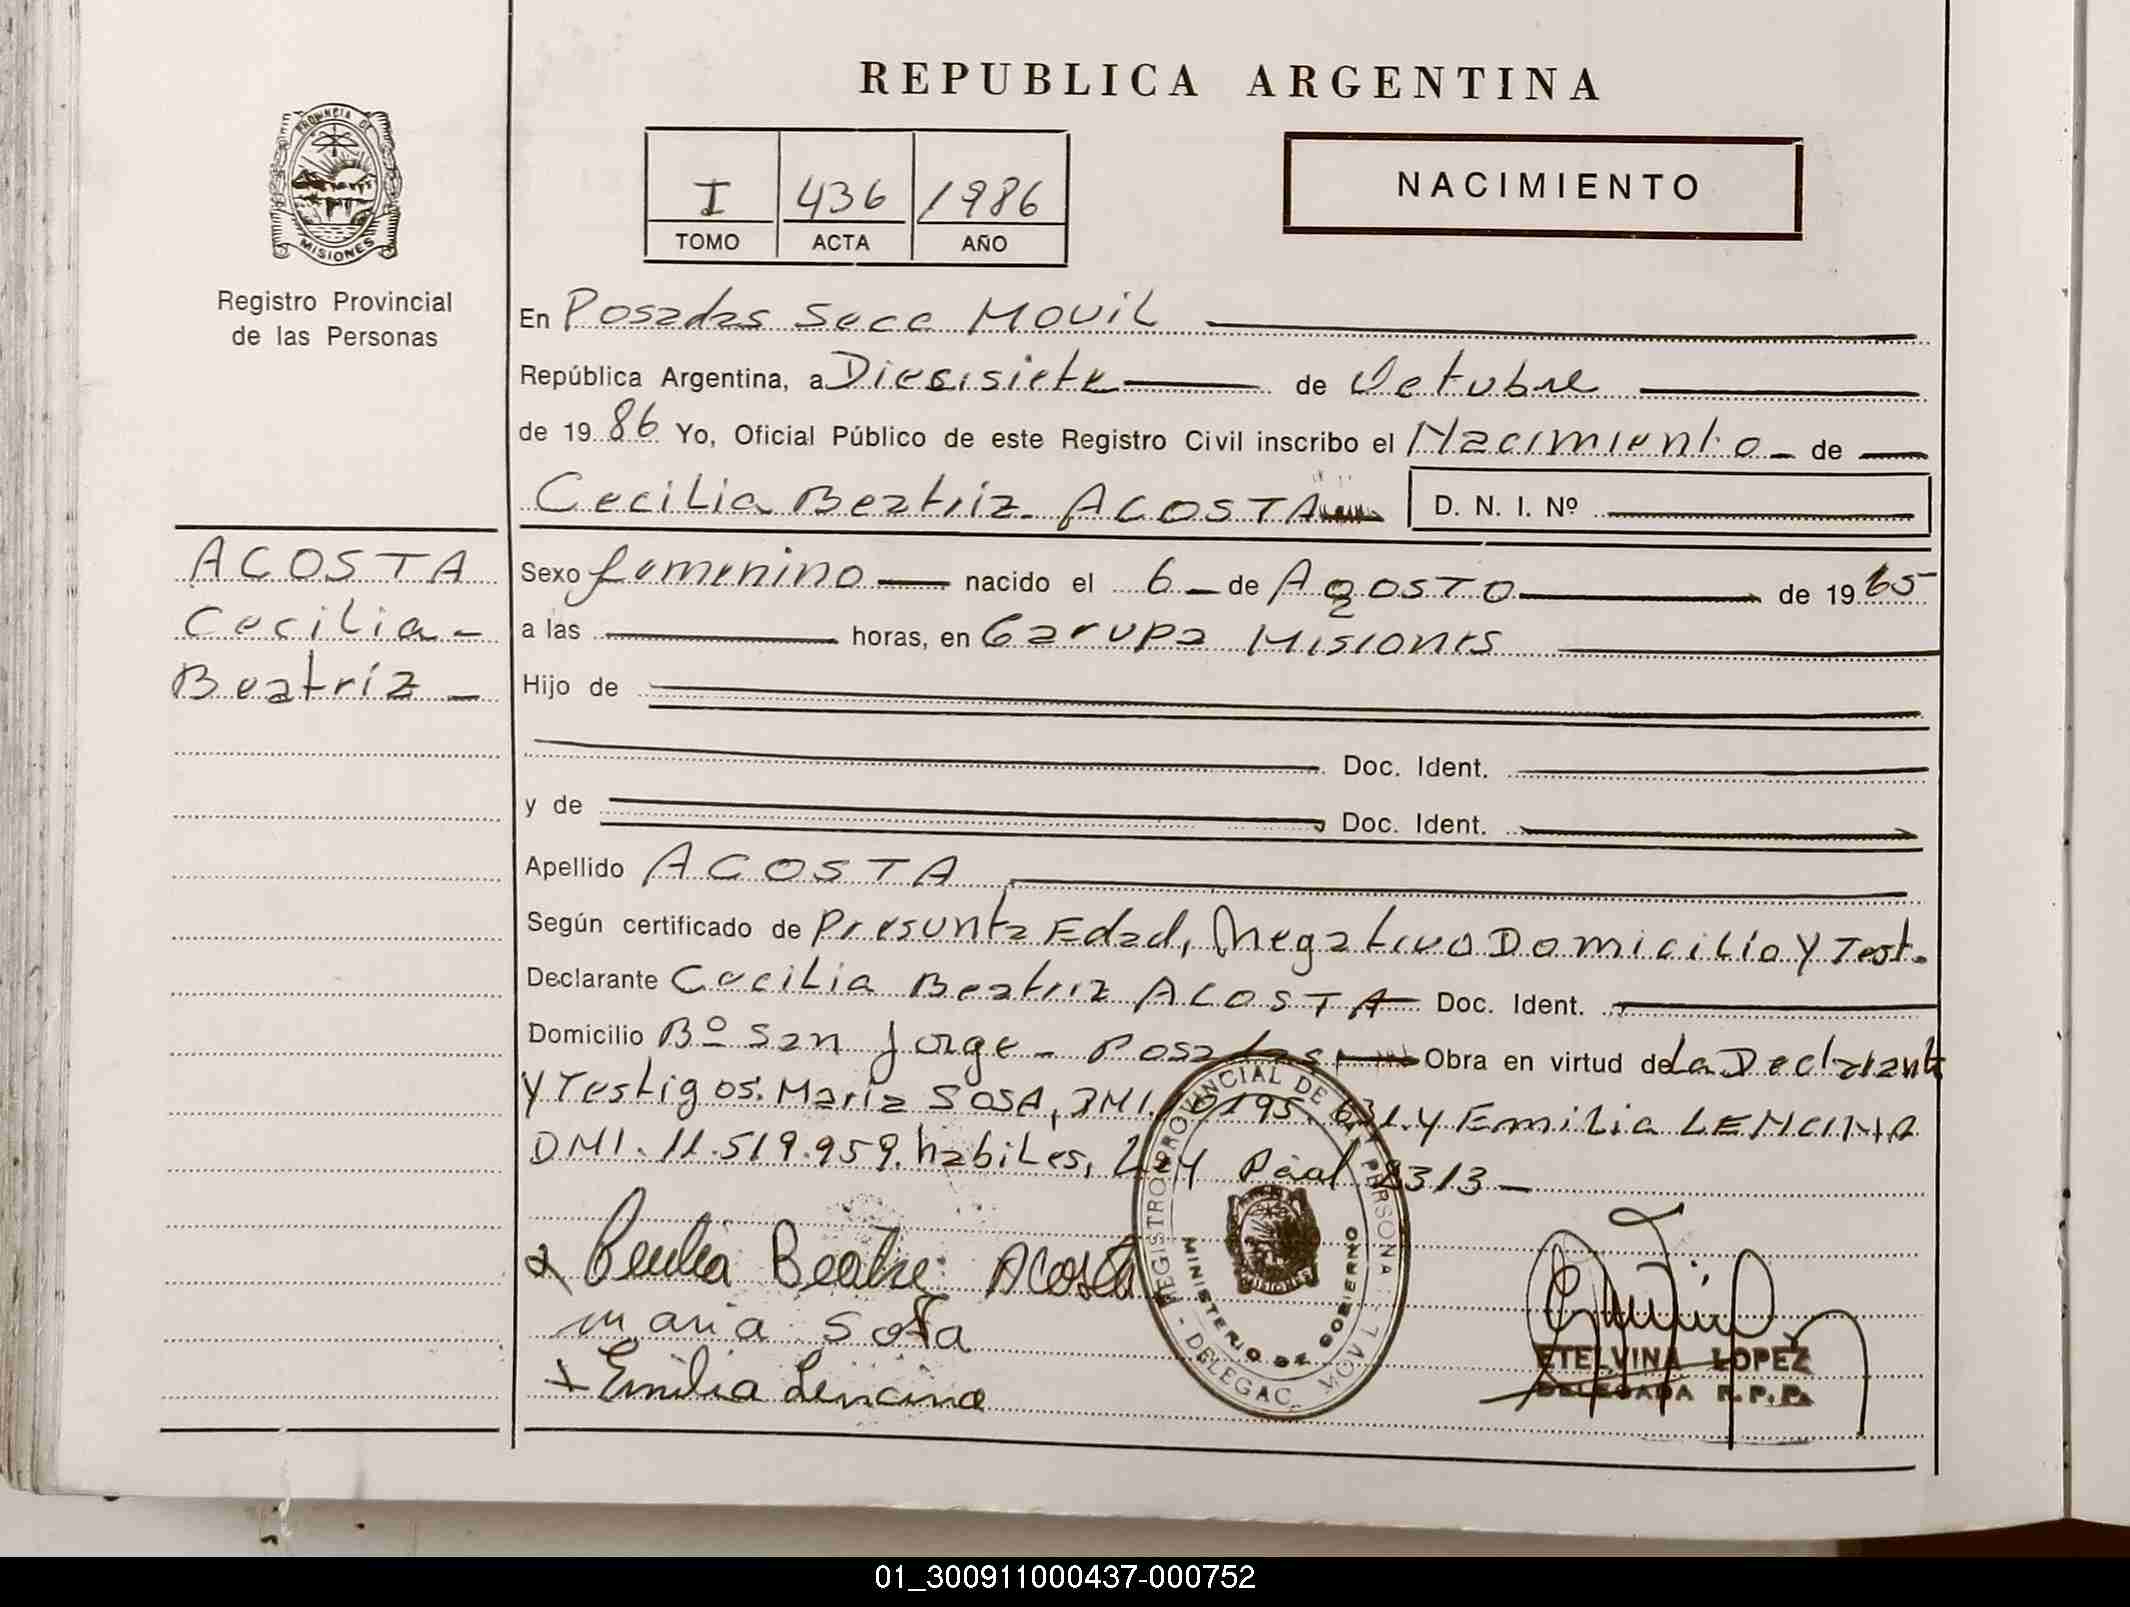 REPUBLICA ARGENTINA
PROVINCIA DE MISIONES
Registro Provincial
de las Personas
I 436 1986
TOMO ACTA AÑO
NACIMIENTO
En Posadas Secc Movil
República Argentina, a Diecisiete de Octubre
de 1986 Yo, Oficial Público de este Registro Civil inscribo el Nacimiento de
Cecilia Beatriz ACOSTA D. N. I. Nº
ACOSTA
Cecilia
Beatriz
Sexo femenino nacido el 6 de Agosto de 1965
a las horas, en Garupa Misiones
Hijo de
Doc. Ident.
y de Doc. Ident.
Apellido ACOSTA
Según certificado de Presunta Edad, Negativo Domicilio Y Test.
Declarante Cecilia Beatriz ACOSTA Doc. Ident.
Domicilio Bº San Jorge - Posadas Obra en virtud de La Declarante
Y Testigos: Maria SOSA, DMI. Y Emilia LENCINA
DMI. 11.519.959. habiles, Ley 2313
Cecilia Beatriz Acosta
Maria Sosa
Emilia Lencina
REGISTRO PROVINCIAL DE LAS PERSONAS
MINISTERIO DE GOBIERNO
MISIONES
DELEGAC. MOVIL
ETELVINA LOPEZ
DELEGADA R.P.P.
01_300911000437-000752